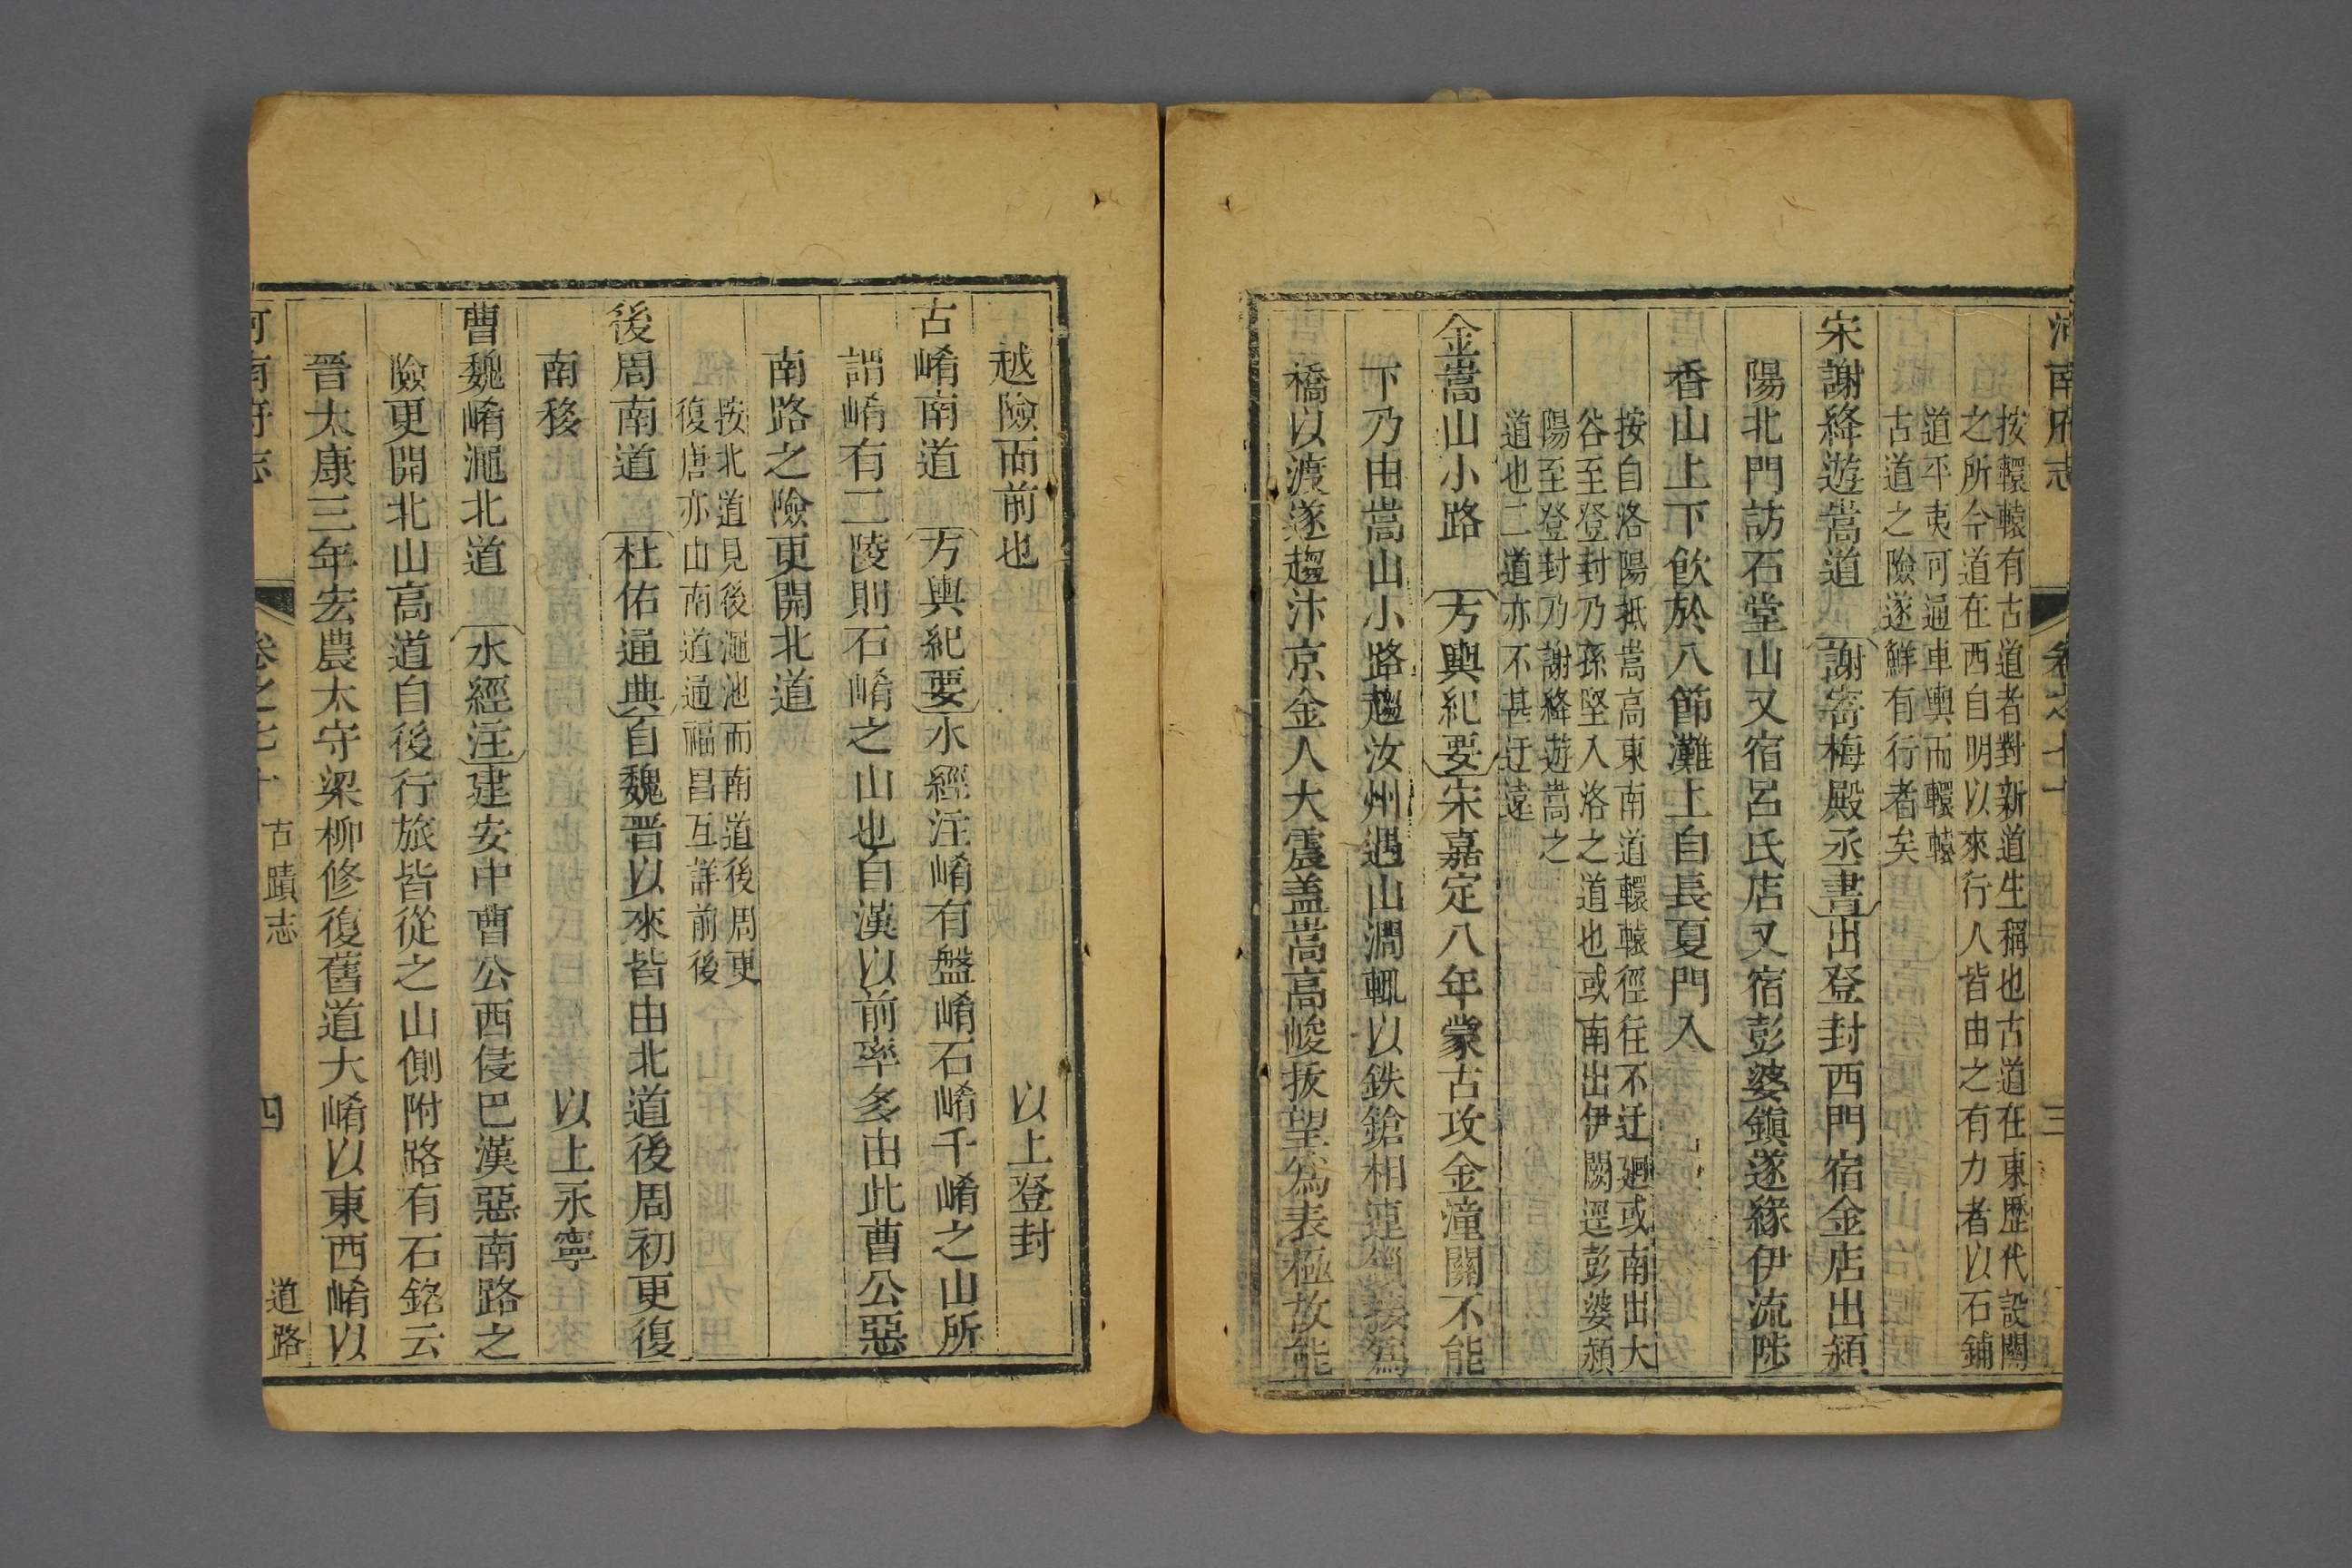 河南府志 卷之七十 三
按轘轅有古道者對新道生稱也古道在東歷代設關
之所今道在西自明以來行人皆由之有力者以石鋪
道平夷可通車輿而轘轅
古道之險遂鮮有行者矣
宋謝絳遊嵩道 謝寄梅殿丞書出登封西門宿金店出潁
陽北門訪石堂山又宿呂氏店又宿彭婆鎮遂緣伊流陟
香山上下飲於八節灘上自長夏門入
按自洛陽抵嵩高東南道轘轅徑往不迂廻或南出大
谷至登封乃孫堅入洛之道也或南出伊闕逕彭婆潁
陽至登封乃謝絳遊嵩之
道也二道亦不甚迂遠
金嵩山小路 方輿紀要宋嘉定八年蒙古攻金潼關不能
下乃由嵩山小路趨汝州遇山澗輒以鉄鎗相連鎖接為
橋以渡遂趨汴京金人大震盖嵩高峻拔望為表極故能
越險而前也 以上登封
古崤南道 方輿紀要水經注崤有盤崤石崤千崤之山所
謂崤有二陵則石崤之山也自漢以前率多由此曹公惡
南路之險更開北道
按北道見後澠池而南道後周更
復唐亦山南道通福昌互詳前後
後周南道 杜佑通典自魏晋以來皆由北道後周初更復
南移 以上永寧
曹魏崤澠北道 水經注建安中曹公西侵巴漢惡南路之
險更開北山高道自後行旅皆從之山側附路有石銘云
晉太康三年宏農太守梁柳修復舊道大崤以東西崤以
河南府志 卷之七十 古蹟志 四 道路